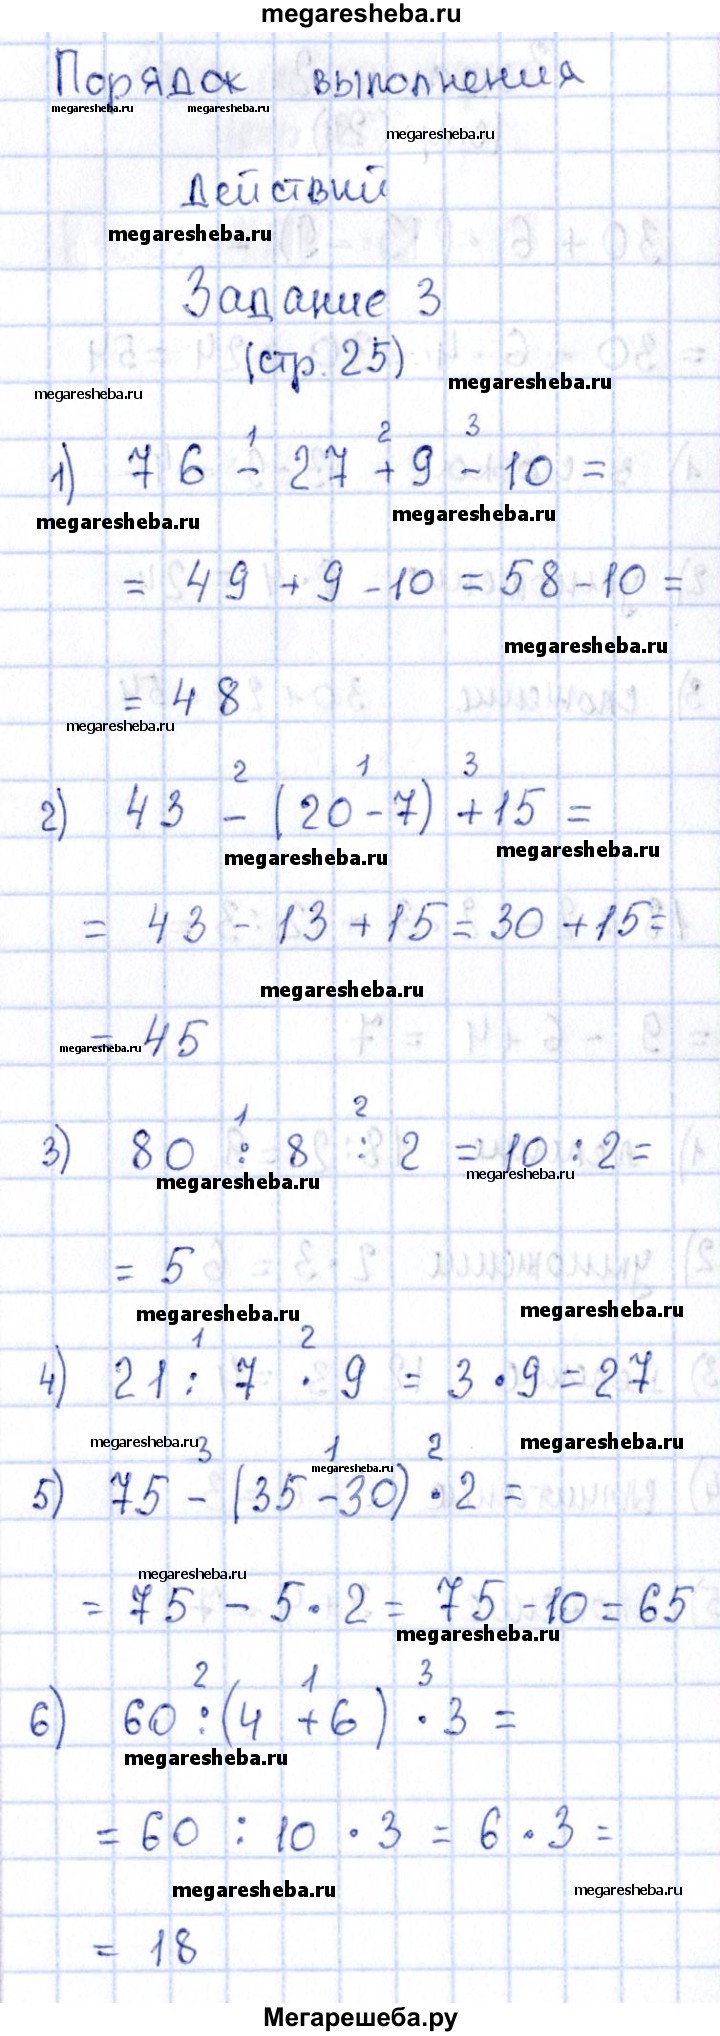 megaresheba.ru
Порядок выполнения
megaresheba.ru megaresheba.ru
megaresheba.ru
Действий
megaresheba.ru
Задание 3
(стр. 25)
megaresheba.ru
megaresheba.ru
1 2 3
1) 76 - 27 + 9 - 10 =
megaresheba.ru
megaresheba.ru
= 49 + 9 - 10 = 58 - 10 =
megaresheba.ru
= 48
megaresheba.ru
2 1 3
2) 43 - (20 - 7) + 15 =
megaresheba.ru
megaresheba.ru
= 43 - 13 + 15 = 30 + 15 =
megaresheba.ru
= 45
megaresheba.ru
1 2
3) 80 : 8 : 2 = 10 : 2 =
megaresheba.ru
megaresheba.ru
= 5
megaresheba.ru
megaresheba.ru
1 2
4) 21 : 7 · 9 = 3 · 9 = 27
megaresheba.ru
megaresheba.ru
3 1 2
megaresheba.ru
5) 75 - (35 - 30) · 2 =
megaresheba.ru
= 75 - 5 · 2 = 75 - 10 = 65
megaresheba.ru
2 1 3
6) 60 : (4 + 6) · 3 =
megaresheba.ru
= 60 : 10 · 3 = 6 · 3 =
megaresheba.ru
megaresheba.ru
= 18
Мегарешеба.ру